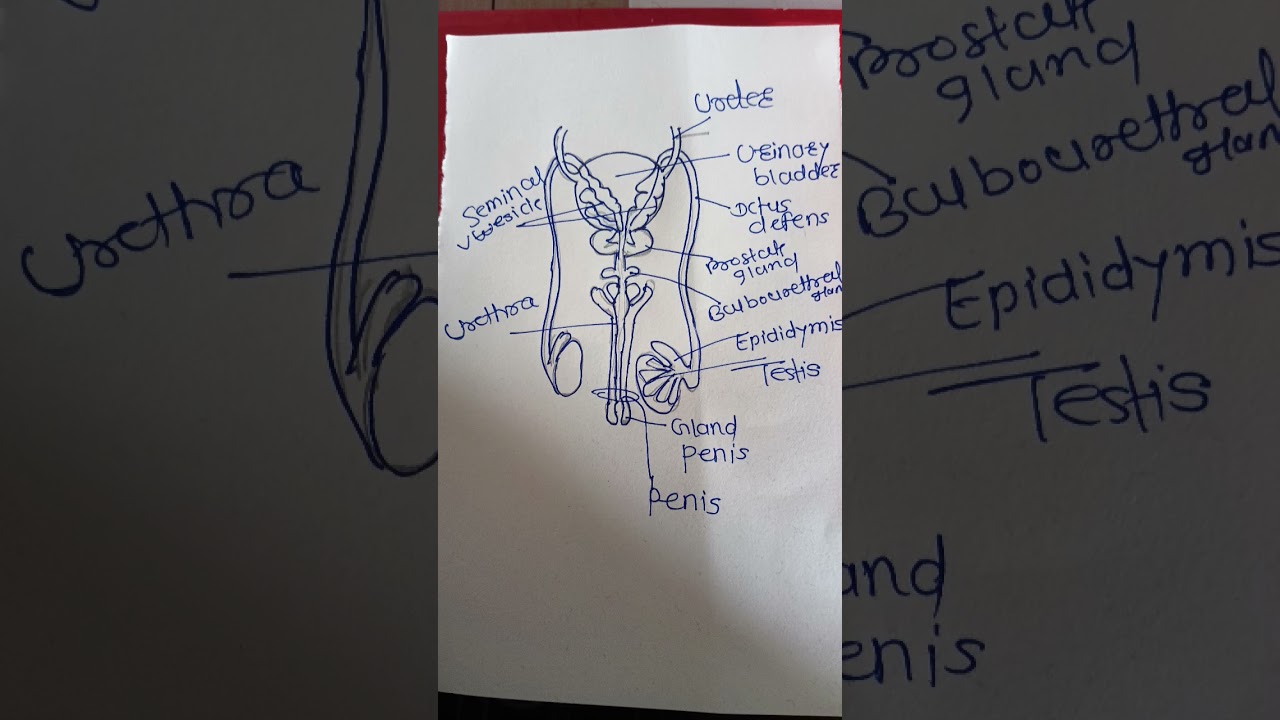 Ureter
Urinary
bladder
Seminal
vesicle
Dctus
defens
Prostate
gland
Bulbourethral
gland
Urethra
Epididymis
Testis
Gland
penis
Penis
Prostate
gland
Bulbourethral
glan
Urethra
Epididymis
Testis
and
enis